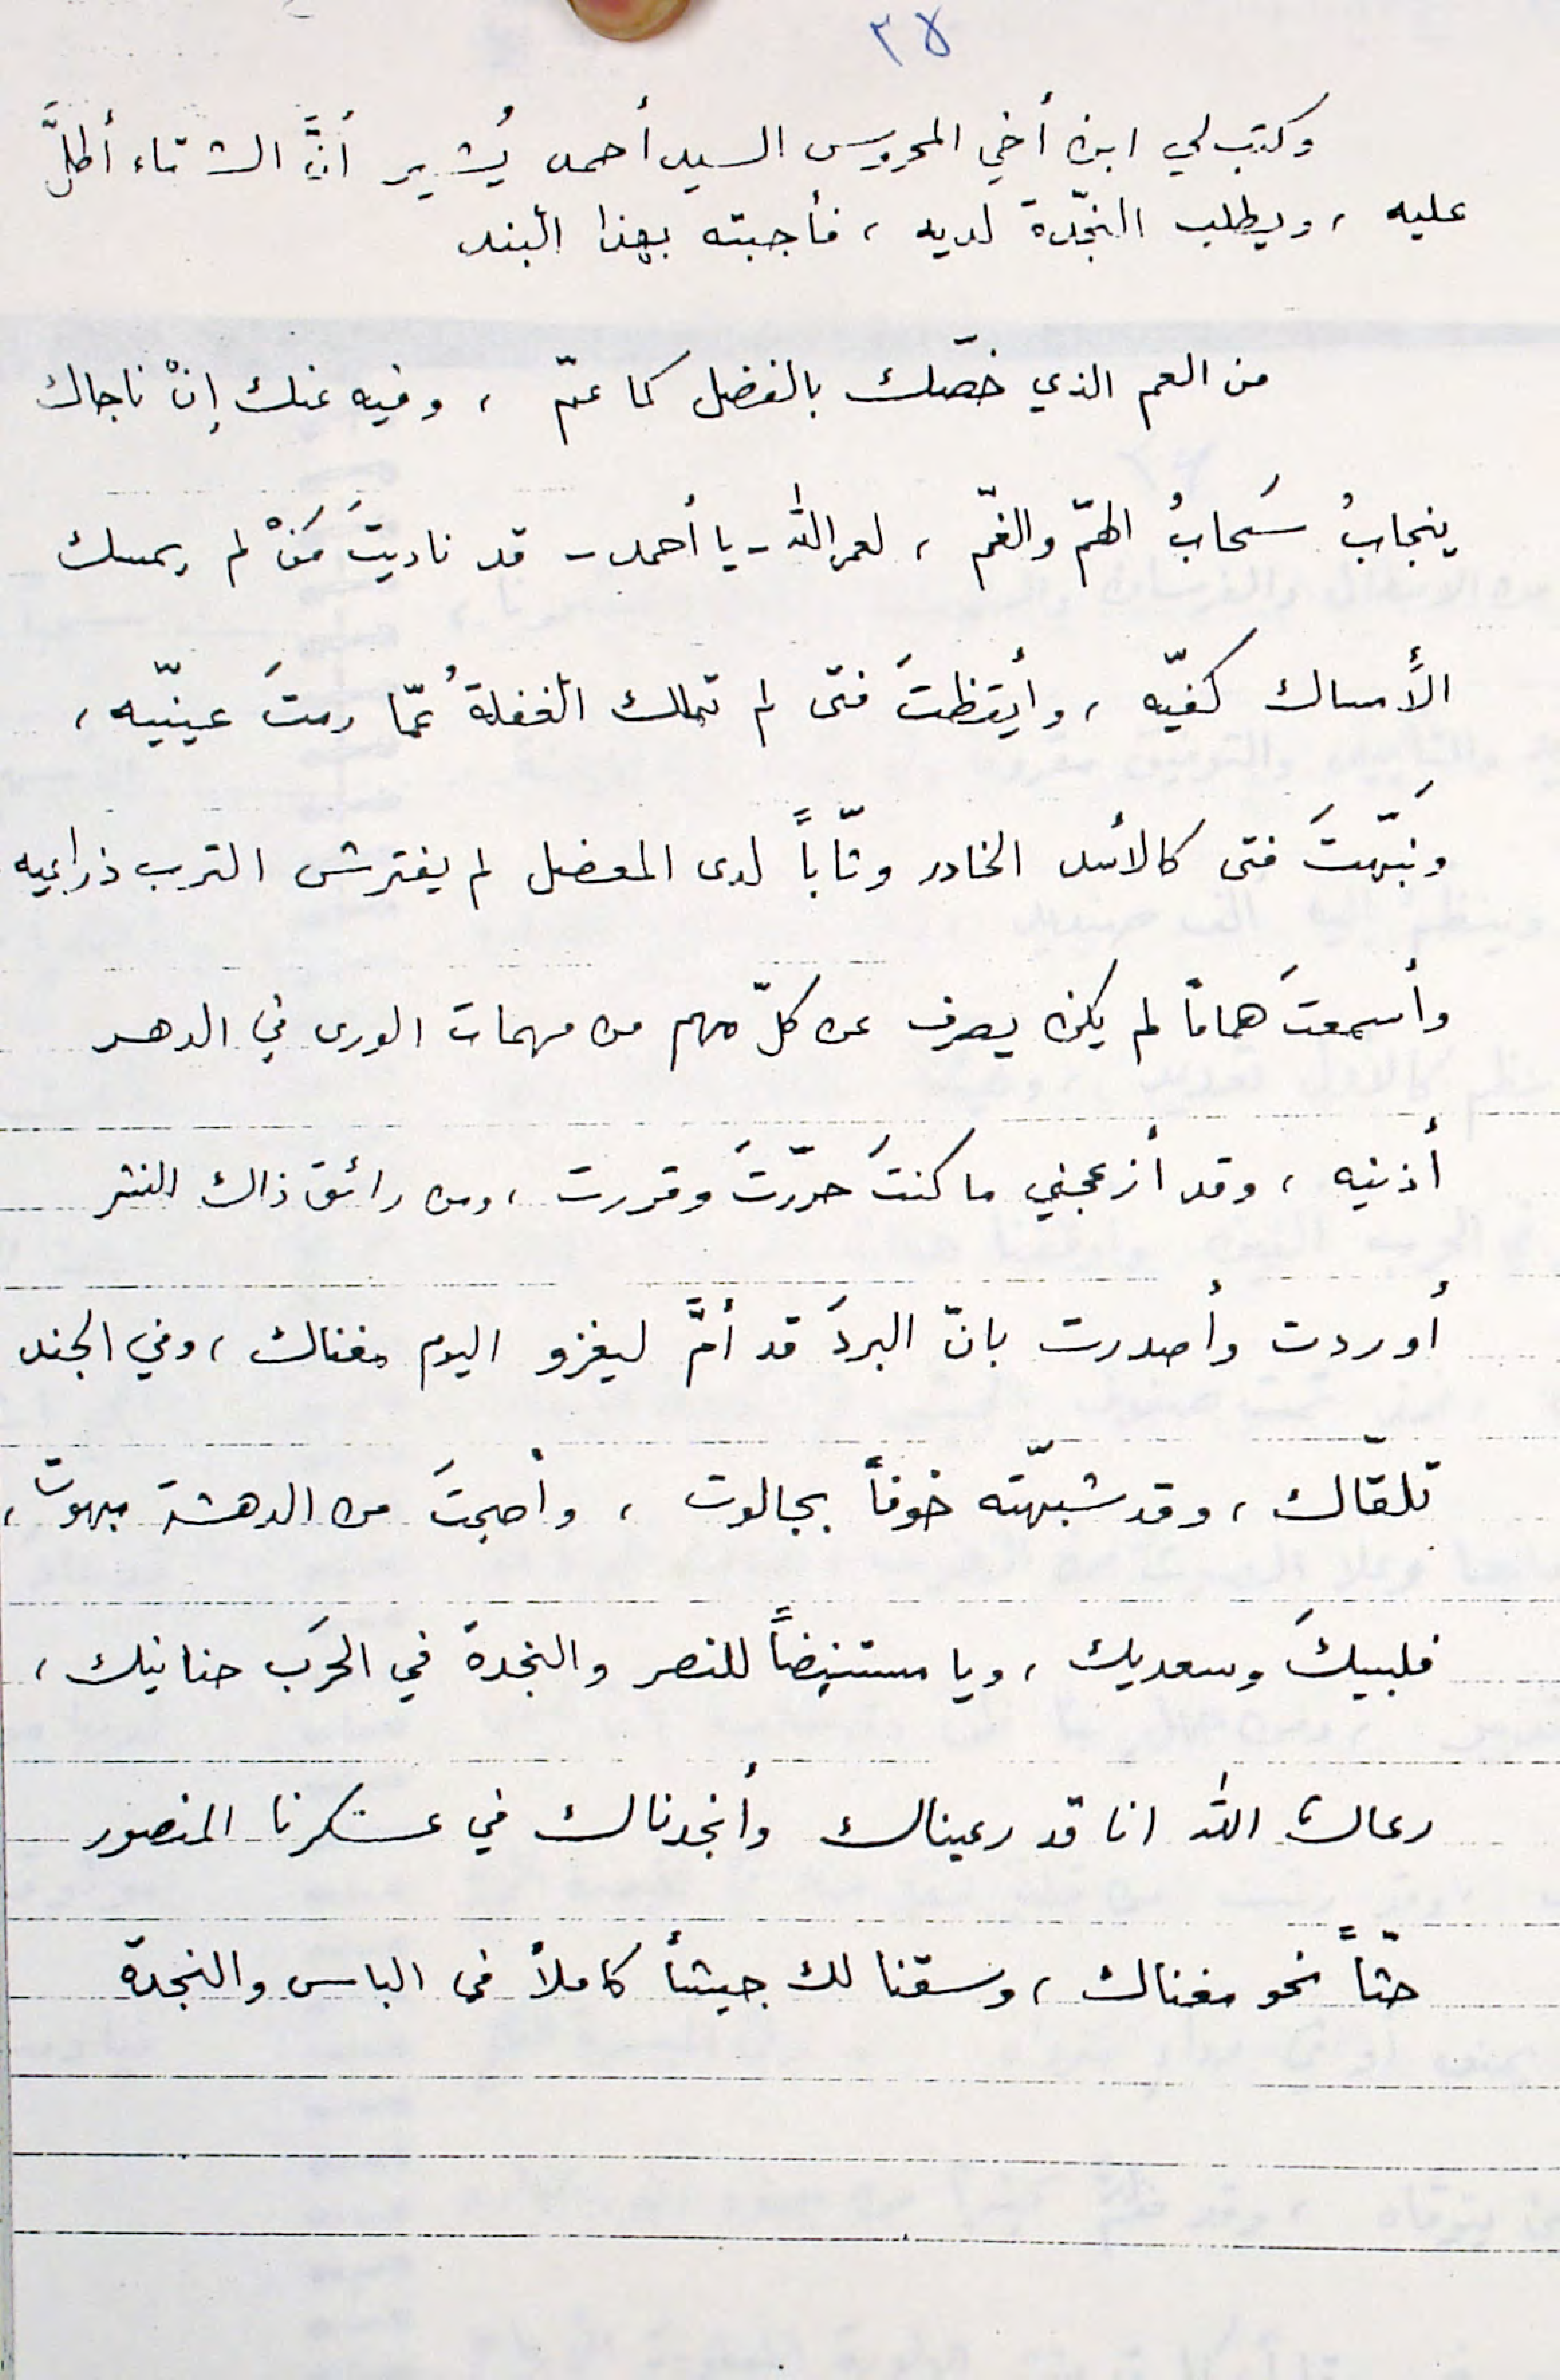 ٣٨
وكتب لي ابن أخي المحروس السيد أحمد يُشير أنَّ الشتاء أطلَّ
عليه ، ويطلب النجّدة لديه ، فأجبته بهذا البند
من العم الذي خصّك بالفضل كما عمّ ، وفيه عنك إنْ ناجاك
ينجابُ سَحابُ الهمّ والغمّ ، لعمر الله - يا أحمد - قد ناديتَ مَنْ لم يمسك
الأمساك كفيّه ، وأيقظتَ فتى لم تملك الغفلةُ عمّا رمتَ عينيّه ،
ونَبّهتَ فتى كالأسد الخادر وثّاباً لدى المعضل لم يفترش الترب ذراعيه
وأسمعتَ هماماً لم يكن يصرف عن كلّ مهم من مهمات الورى في الدهر
أذنيه ، وقد أزعجني ما كنتَ حرّرتَ وقررت ، ومن رائق ذاك النثر
أوردت وأصدرت بانّ البردَ قد أمَّ ليغزو اليوم مغناك ، وفي الجند
تلقّاك ، وقد شبّهته خوفاً بجالوت ، وأصبحتَ من الدهشة مبهوت ،
فلبيكَ وسعديك ، ويا مستنهضاً للنصر والنجدة في الحرَب حنانيك ،
رعاك الله انا قد رعيناك وأنجدناك في عسكرنا المنصور
حثّاً نحو مغناك ، وسقنا لك جيشاً كاملاً في الباس والنجدة